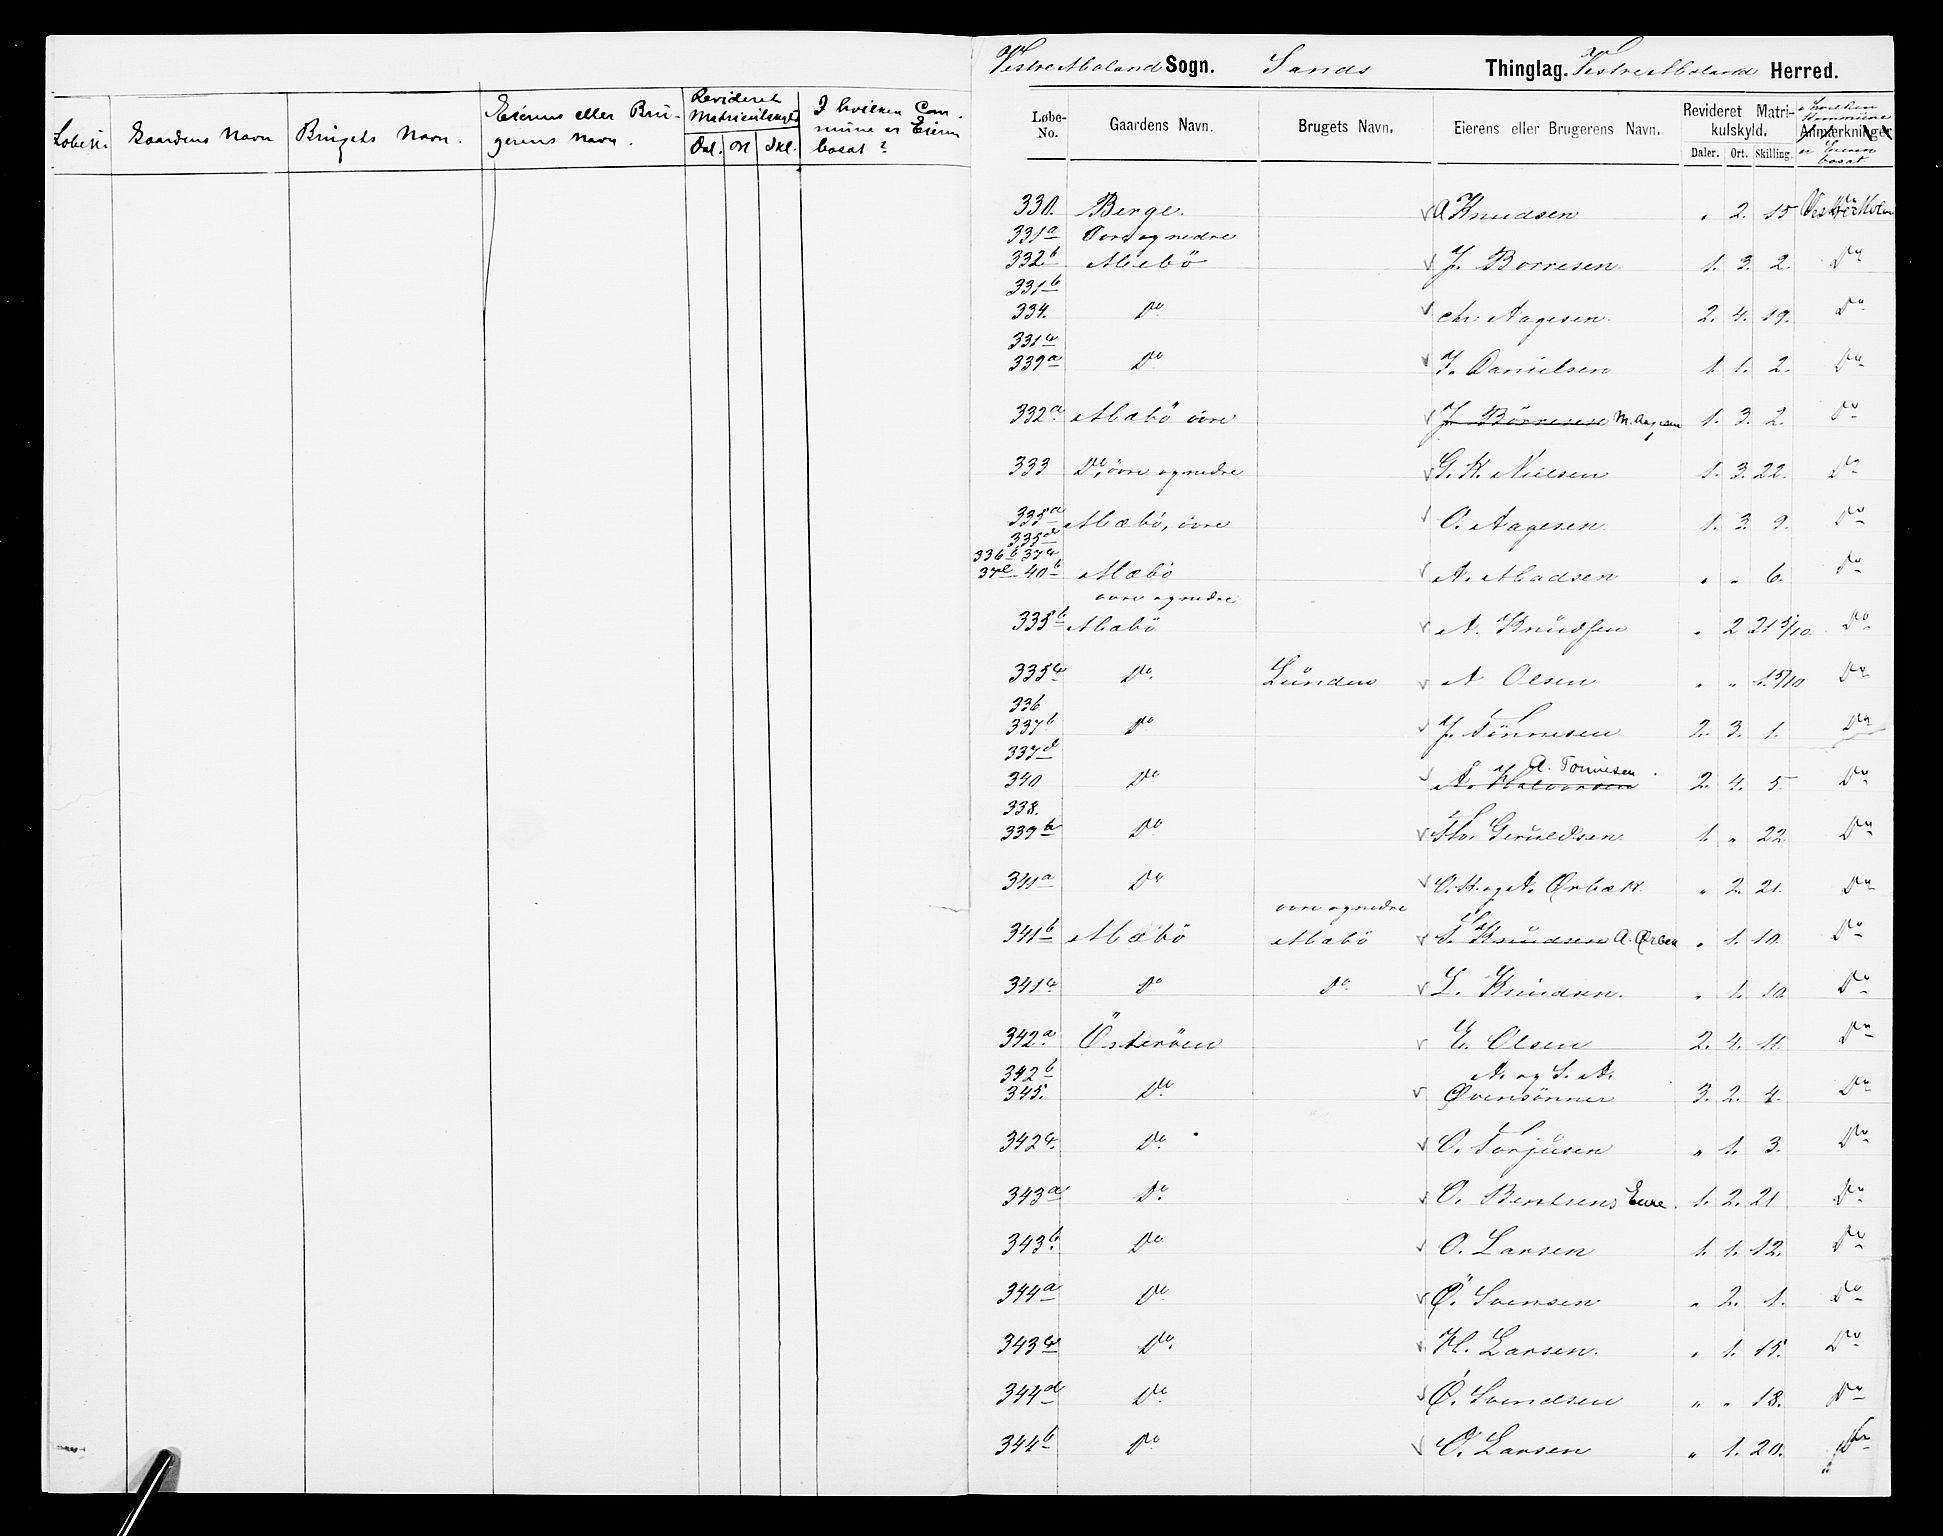 Løbe № Gaardens Navn Brugets Navn. Eierens eller Brugerens Navn. Revideret Matriculskyld Dal. Ort Skl. I hvilken Commune er Eieren bosat?
Vestre Moland Sogn. Sands Thinglag. Vestre Moland Herred.
Løbe-No. Gaardens Navn. Brugets Navn. Eierens eller Brugerens Navn. Revideret Matrikulskyld. Daler. Ort. Skilling. Anmærkninger i hvilken Kommune er Eieren bosat.
330. Berge. A Knudsen " 2. 15
331a Øvre og nedre
332b Mæbö J. Borresen 1. 3. 2. Do
331b
334. Do Chr. Aagesen. 2. 4. 19. Do
331c
339a Do J. Danielsen 1. 1. 2. Do
332a Mæbö övre J. Börresen M. Aagesen 1. 3. 2. Do
333 Do, övre og nedre G. K. Nielsen 1. 3. 22. Do
335a Mæbö, övre O. Aagesen 1. 3. 9. Do
335d
336b 37c
37e 40b Mæbö A. Madsen " " 6. Do
övre og nedre
335b Mæbö A. Knudsen " 2 21 5/10 Do
335c Do. Lunden A Olsen " " 1. 5/10 Do
336
337b Do J. Tönnesen 2. 3. 1. Do
337d A. Tönnesen
340 Do A. Halvorsen 2. 4. 5 Do
338.
339b Do Th. Geruldsen 1. " 22 Do
341a Do O. K. og A. Ørbæk. " 2. 21. Do
övre og nedre
341b Mæbö Mæbö T. Knudsen A. Ørbek " 1. 10. Do
341c Do Do L. Knudsen. " 1. 10 Do
342a Österöen E. Olsen 2. 4. 11. Do
342b A. og S. A.
345. Do Øvensönner 3. 2. 4. Do
342c. Do O. Torjusen " 1. 3. Do
343a Do O. Bentsens Enke. 1. 2. 21 Do
343b. Do O. Larsen 1. 1. 12. Do
344a Do Ö. Svensen " 2. 1. Do
343c Do. H. Larsen. " 1. 15. Do
344d Do Ö. Svendsen " " 18. Do
344b Do O. Larsen " 1. 20. Do